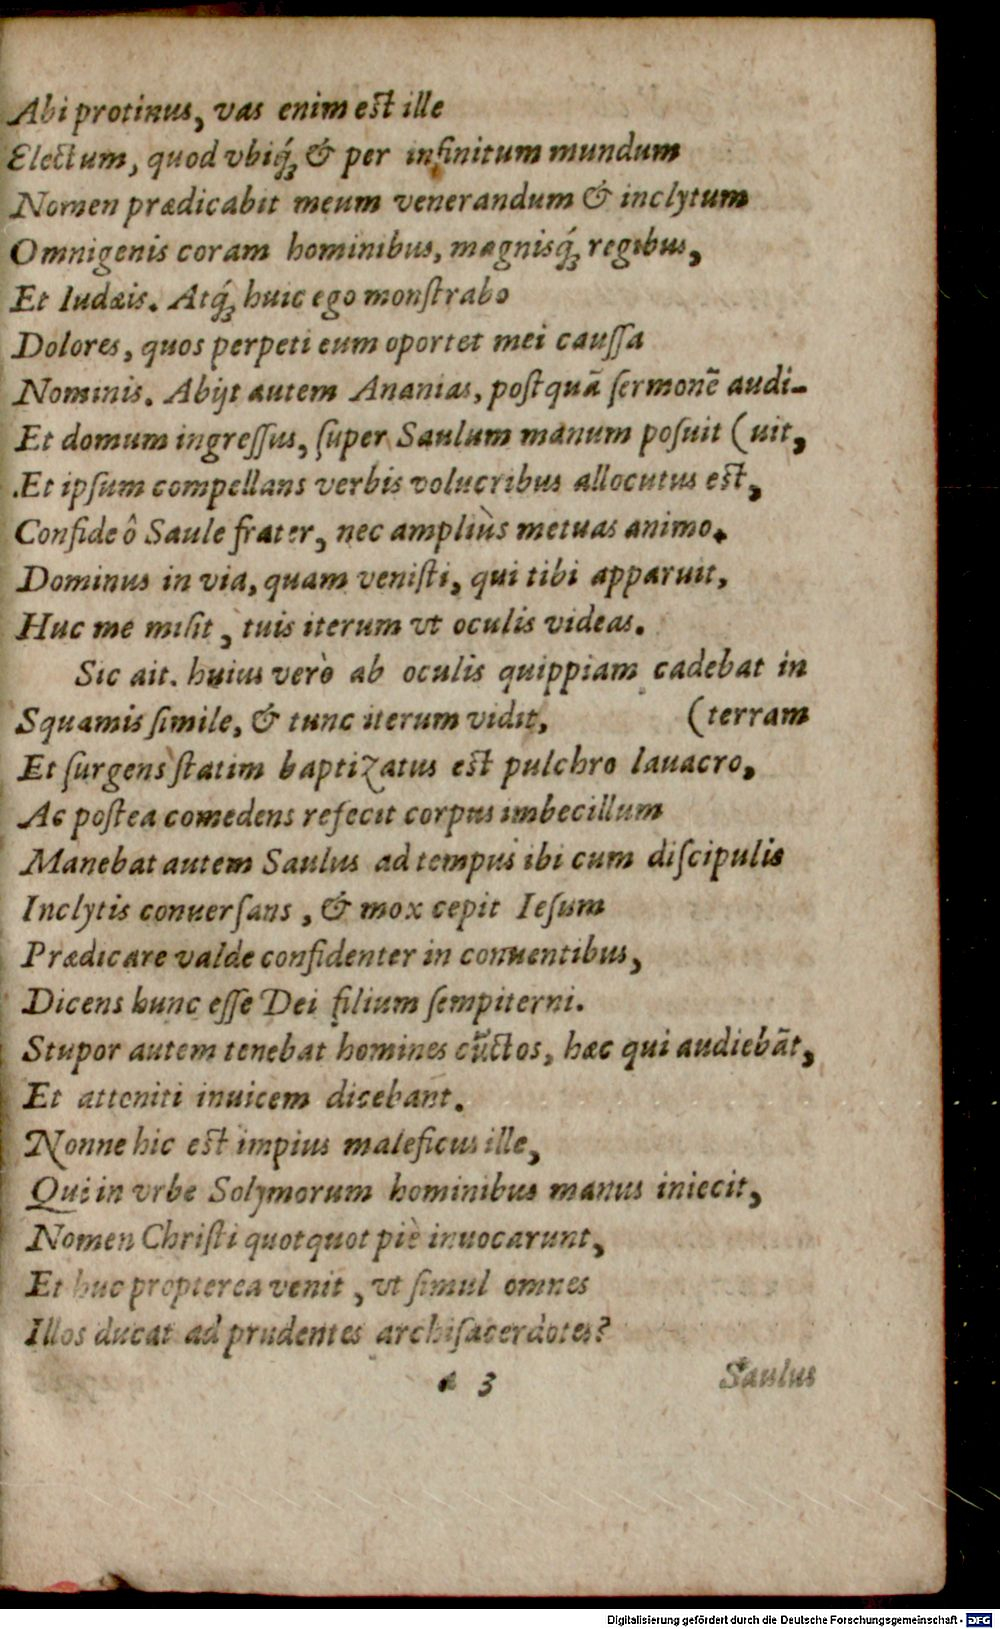 Abi protinus, vas enim est ille
Electum, quod vbiq́ꝫ & per infinitum mundum
Nomen prædicabit meum venerandum & inclytum
Omnigenis coram hominibus, magnisq́ꝫ regibus,
Et Iudæis. Atq́ꝫ huic ego monſtrabo
Dolores, quos perpeti eum oportet mei cauſſa
Nominis. Abijt autem Ananias, poſtquā ſermonē audi-
Et domum ingreſſus, ſuper Saulum manum poſuit (uit,
Et ipſum compellans verbis volucribus allocutus est,
Confide ô Saule frater, nec ampliùs metuas animo.
Dominus in via, quam veniſti, qui tibi apparuit,
Huc me miſit, tuis iterum vt oculis videas.
Sic ait. huius verò ab oculis quippiam cadebat in
Squamis ſimile, & tunc iterum vidit, (terram
Et ſurgens ſtatim baptizatus est pulchro lauacro,
Ac poſtea comedens refecit corpus imbecillum
Manebat autem Saulus ad tempus ibi cum diſcipulis
Inclytis conuerſans, & mox cepit Ieſum
Prædicare valde confidenter in conuentibus,
Dicens hunc eſſe Dei filium ſempiterni.
Stupor autem tenebat homines cūctos, hæc qui audiebāt,
Et attoniti inuicem dicebant.
Nonne hic est impius maleficus ille,
Qui in vrbe Solymorum hominibus manus iniecit,
Nomen Chriſti quotquot piè inuocarunt,
Et huc propterea venit, vt ſimul omnes
Illos ducat ad prudentes archiſacerdotes?
3 Saulus
Digitalisierung gefördert durch die Deutsche Forschungsgemeinschaft - DFG